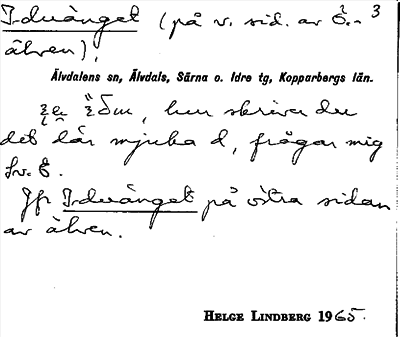 Idvänget (på v. sid. av Ö.- 3
älven),
Älvdalens sn, Älvdals, Särna o. Idre tg, Kopparbergs län.
hur skriver du
det där mjuka d, frågar mig
Jfr Idvänget på östra sidan
av älven.
HELGE LINDBERG 1965.